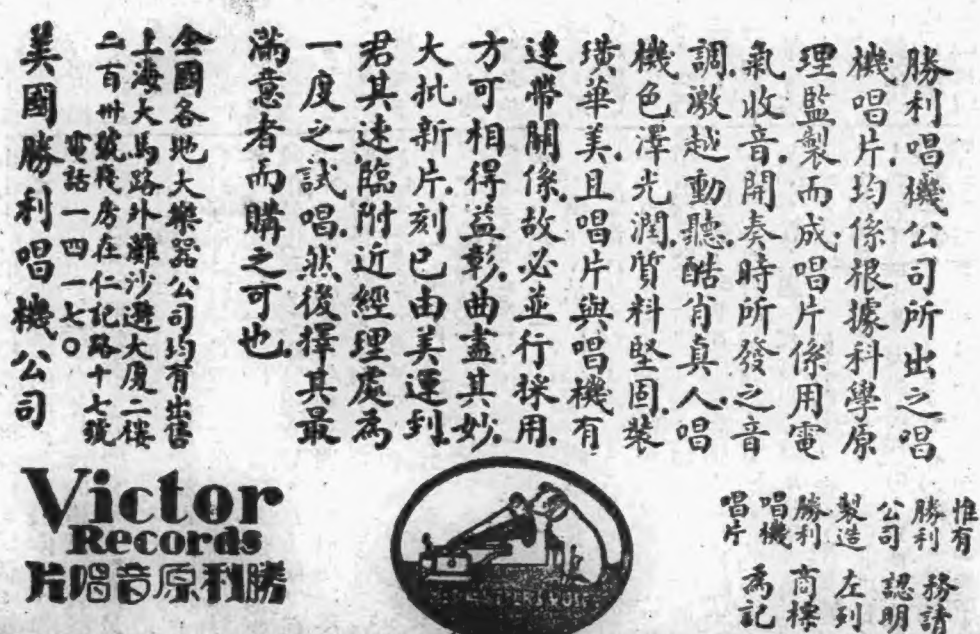 勝利唱機公司所出之唱
機唱片.均係根據科學原
理監製而成.唱片係用電
氣收音.開奏時所發之音
調.激越動聽.酷肖真人.唱
機色澤光潤.質料堅固.裝
璜華美.且唱片與唱機有
連帶關係.故必並行採用.
方可相得益彰.曲盡其妙.
大批新片.刻已由美運到.
君其速臨附近經理處為
一度之試唱.然後擇其最
滿意者而購之可也.
全國各地大樂器公司均有出售
上海大馬路外灘沙遜大廈二樓
二百卅號棧房在仁記路十七號
電話一四一七〇
美國勝利唱機公司
惟有
勝利
公司
製造
勝利
唱機
唱片
務請
認明
左列
商標
為記
Victor
Records
勝利原音唱片